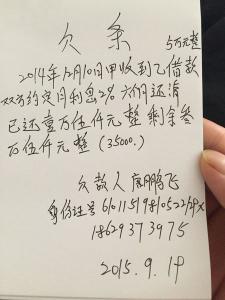 欠条 5万元整
2014年12月10日甲收到乙借款
双方约定月利息2% 六个月还清
已还壹万伍仟元整 剩余叁
万伍仟元整 (35000.)
欠款人 鹏飞
身份证号
18629373975
2015.9.19